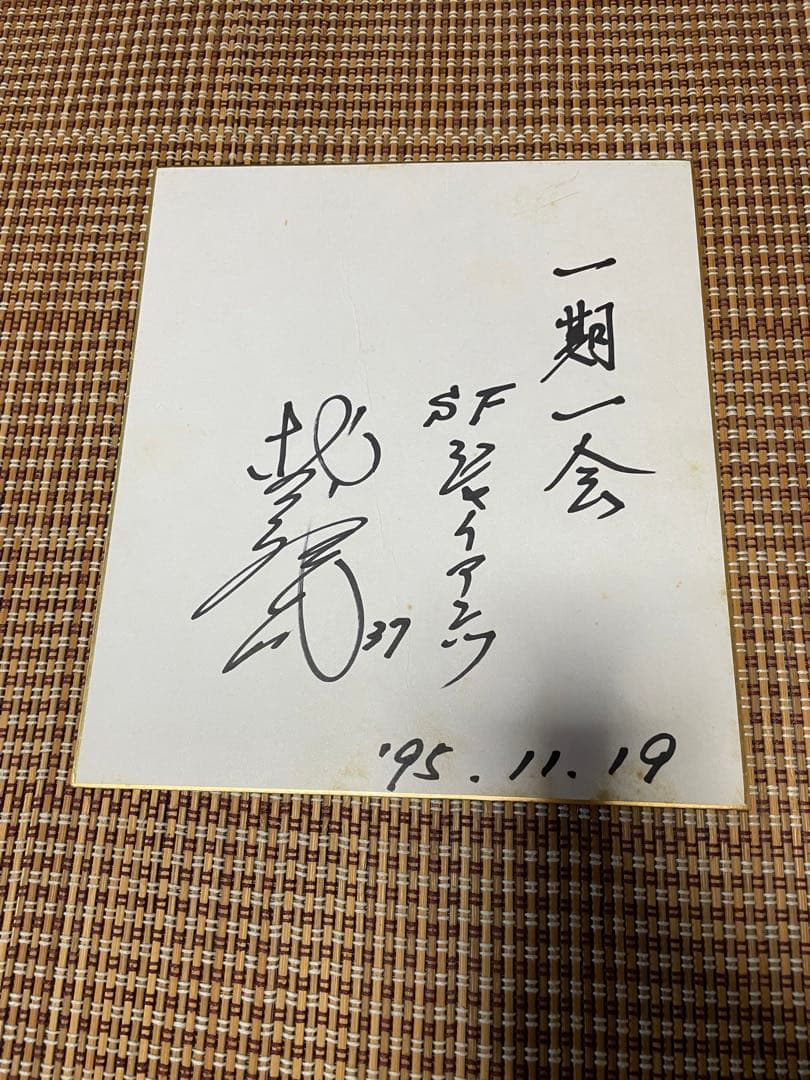 一期一会
SFジャイアンツ
37
'95.11.19